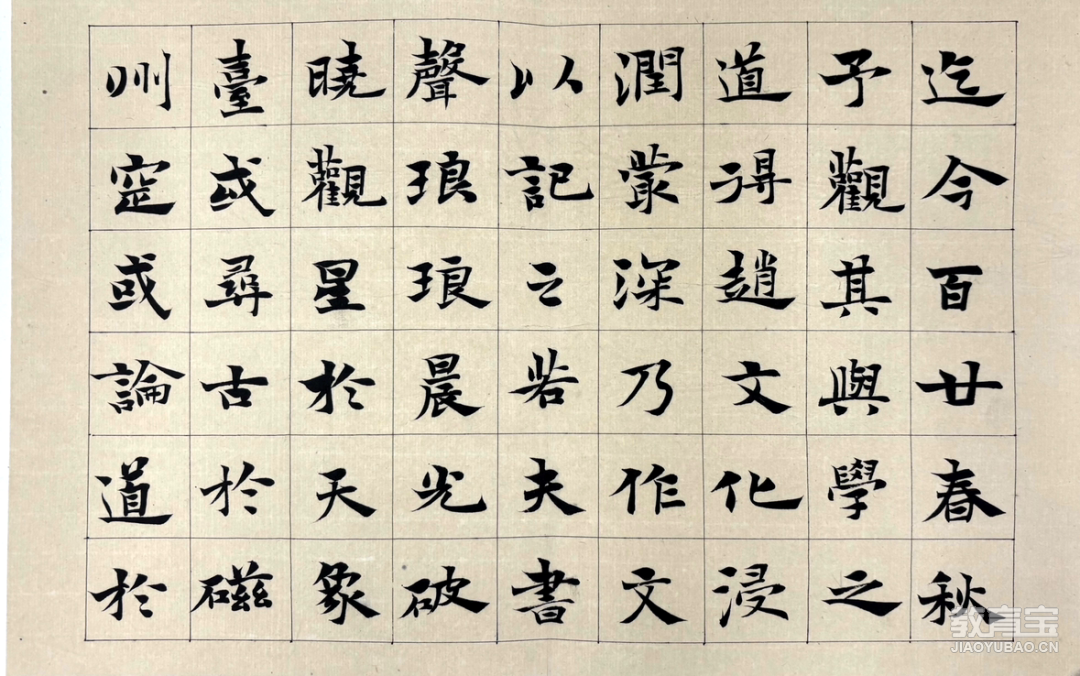 迄今百廿春秋
予觀其與學之
道得趙文化浸
潤蒙深乃作文
以記之若夫書
聲琅琅晨光破
曉觀星於天象
臺或尋古於磁
州窑或論道於
教育宝
JIAOYUBAO.CN